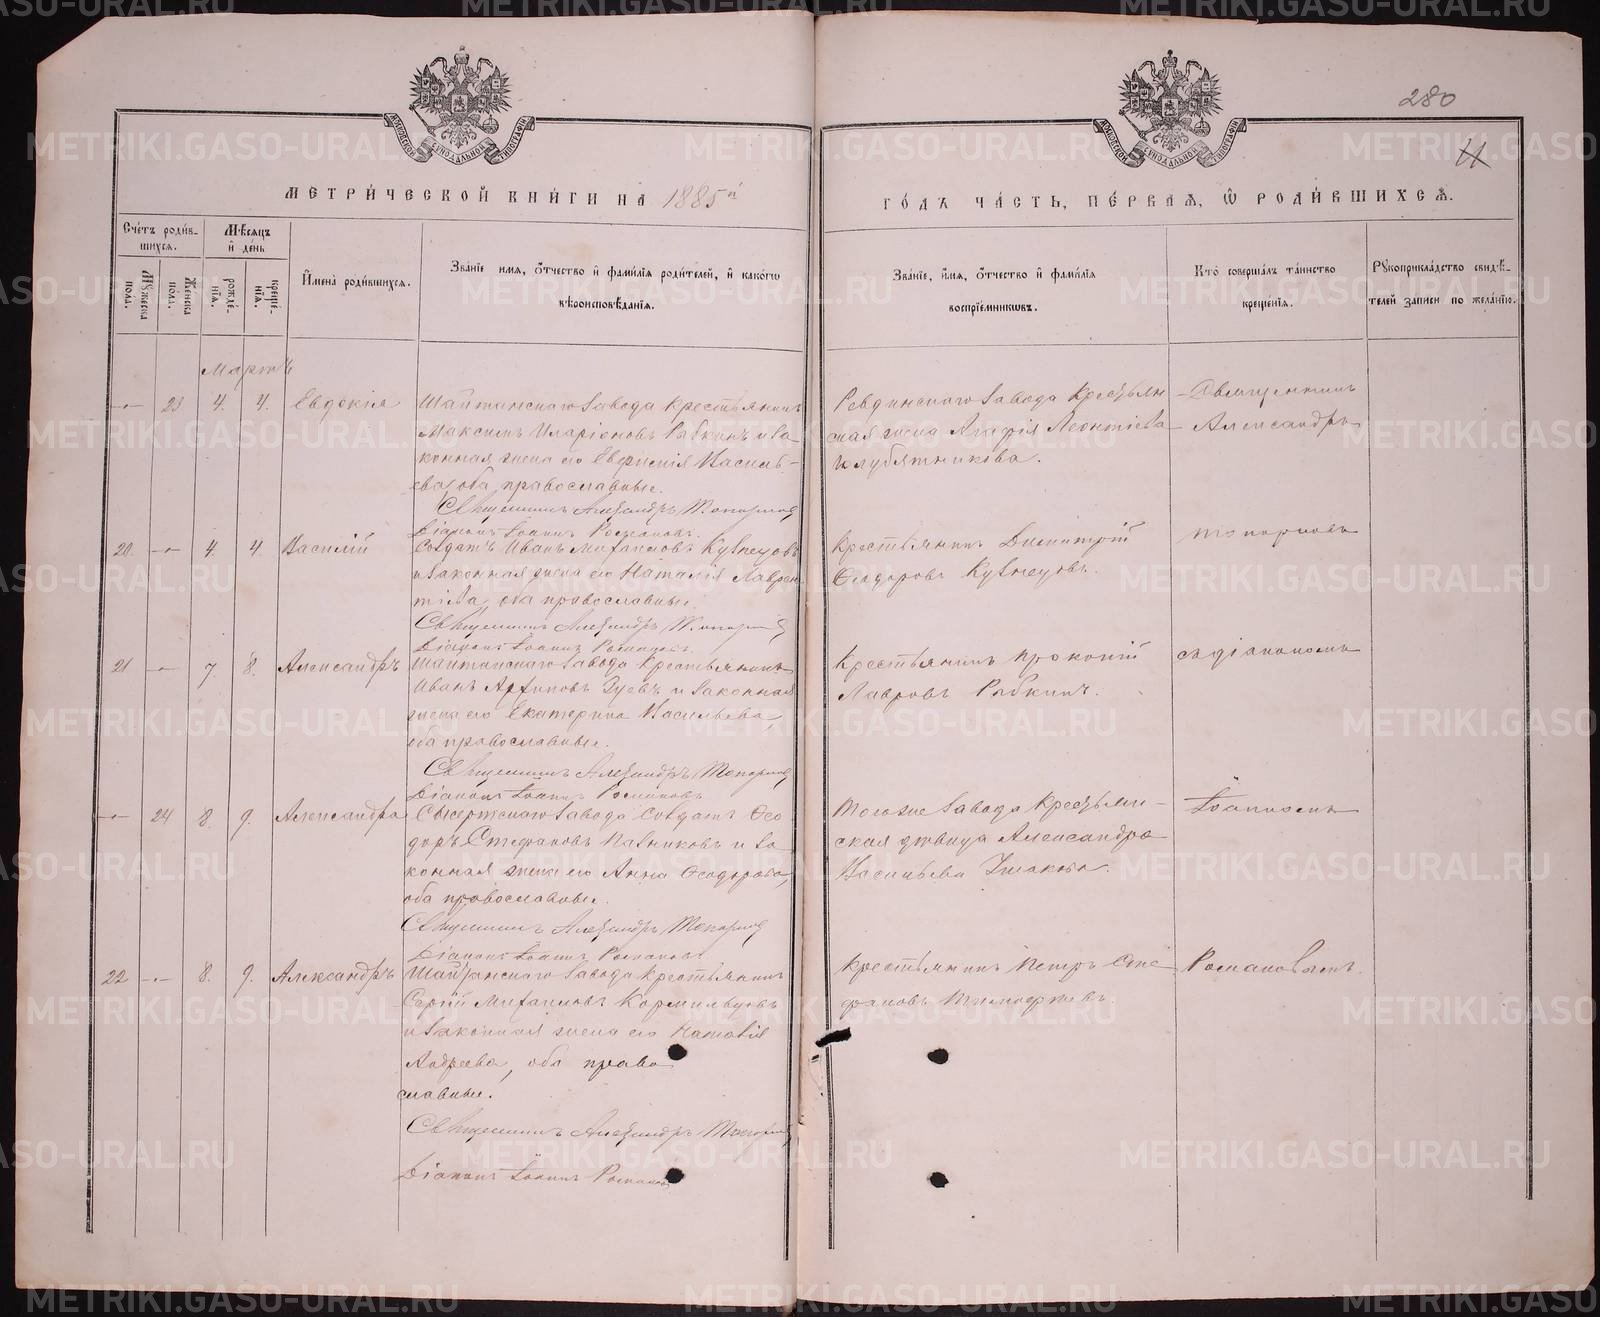 280
11
МЕТРИ́ЧЕСКОЙ КНИ́ГИ НА 1885й
ГО́ДЪ ЧА́СТЬ, ПЕ́РВАѦ, Ѿ РОДИ́ВШИХСѦ.
Сче́тъ роди́в-
шихсѧ.
Мѣ́сѧцъ
и҆ де́нь
Мꙋжеска
пола.
Женска
пола.
рожде́-
нїѧ.
креще́-
нїѧ.
И҆мена̀ роди́вшихсѧ.
Зва́нїе имѧ, ѻ҆́тчество и҆ фами́лїѧ роди́телей, и҆ како́гѡ
вѣроисповѣ́данїѧ.
Зва́нїе, и҆́мѧ, ѻ҆́тчество и҆ фами́лїѧ
воспрїе́мникѡвъ.
Кто̀ соверша́лъ та́инство
креще́нїѧ.
Рꙋкоприкла́дство свидѣ́-
телей за́писи по жела́нїю.
Мартъ
23 4. 4. Евдокія
Шайтанскаго завода крестьянинъ
Максимъ Иларіоновъ Рыбкинъ и за-
конная жена его Евгенія Василь-
ева, оба православные.
Священникъ Александръ Топорковъ
Діаконъ Іоаннъ Романовъ.
Ревдинскаго завода крестьян
ская жена Агафія Леонтіева
Голубятникова.
Священникъ
Александръ
20. 4. 4. Василій
Солдатъ Иванъ Михаиловъ Кузнецовъ
и законная жена его Наталія Лаврен
тіева, оба православные.
Священникъ Александръ Топорковъ
Діаконъ Іоаннъ Романовъ.
Крестьянинъ Димитрій
Ѳедоровъ Кузнецовъ.
Топорковъ
21 7. 8. Александръ
Шайтанскаго завода крестьянинъ
Иванъ Архиповъ Гуевъ и законная
жена его Екатерина Васильева,
оба православные.
Священникъ Александръ Топорковъ
Діаконъ Іоаннъ Романовъ
Крестьянинъ Прокопій
Лавровъ Рыбкинъ.
съ діакономъ
24 8. 9. Александра
Сысертскаго завода солдатъ Ѳео
доръ Стефановъ и за
конная жена его Анна Ѳеодорова,
оба православные.
Священникъ Александръ Топорковъ
Діаконъ Іоаннъ Романовъ
Тогоже завода крестьян-
ская дѣвица Александра
Васильева
Іоанномъ
22 8. 9. Александръ
Шайтанскаго завода крестьянинъ
Сергій Михаиловъ Кормильцовъ
и законная жена его Наталія
Андреева, оба право
славные.
Священникъ Александръ Топорковъ
Діаконъ Іоаннъ Романовъ
Крестьянинъ Петръ Сте
фановъ Тимофеевъ.
Романовымъ.